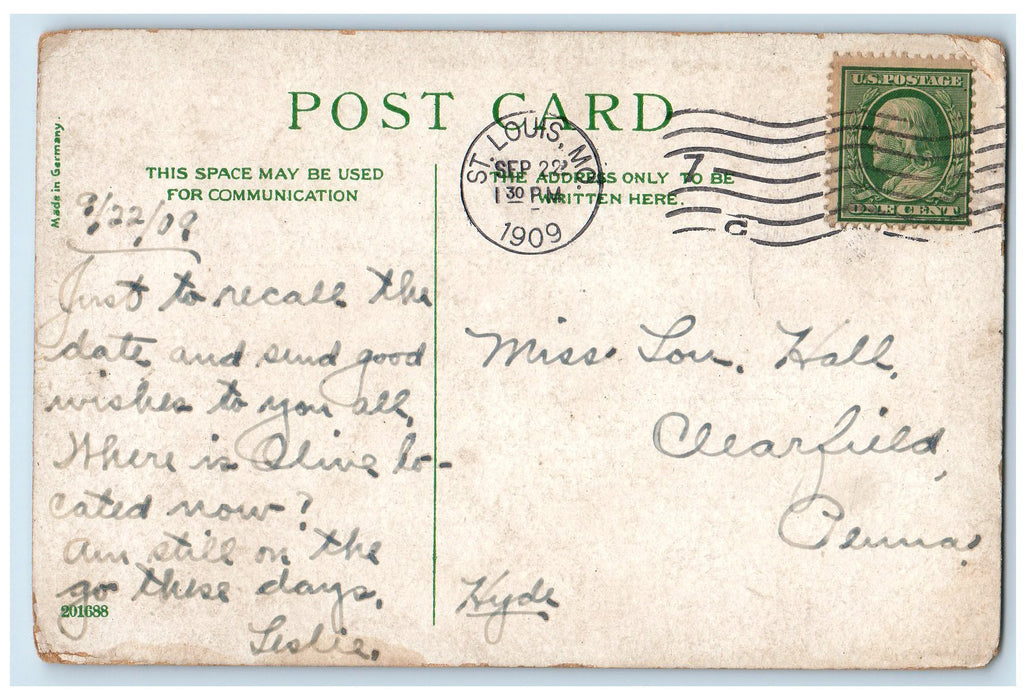 POST CARD
Made in Germany.
THIS SPACE MAY BE USED
FOR COMMUNICATION
THE ADDRESS ONLY TO BE
WRITTEN HERE.
ST. LOUIS, MO.
SEP 22
1 30 P.M.
1909
7
C
U.S. POSTAGE
ONE CENT
9/22/09
Just to recall the
date and send good
wishes to you all,
Where is Olive lo-
cated now?
Am still on the
go these days.
Leslie.
201688
Miss Lou. Hall,
Clearfield,
Penna.
Hyde